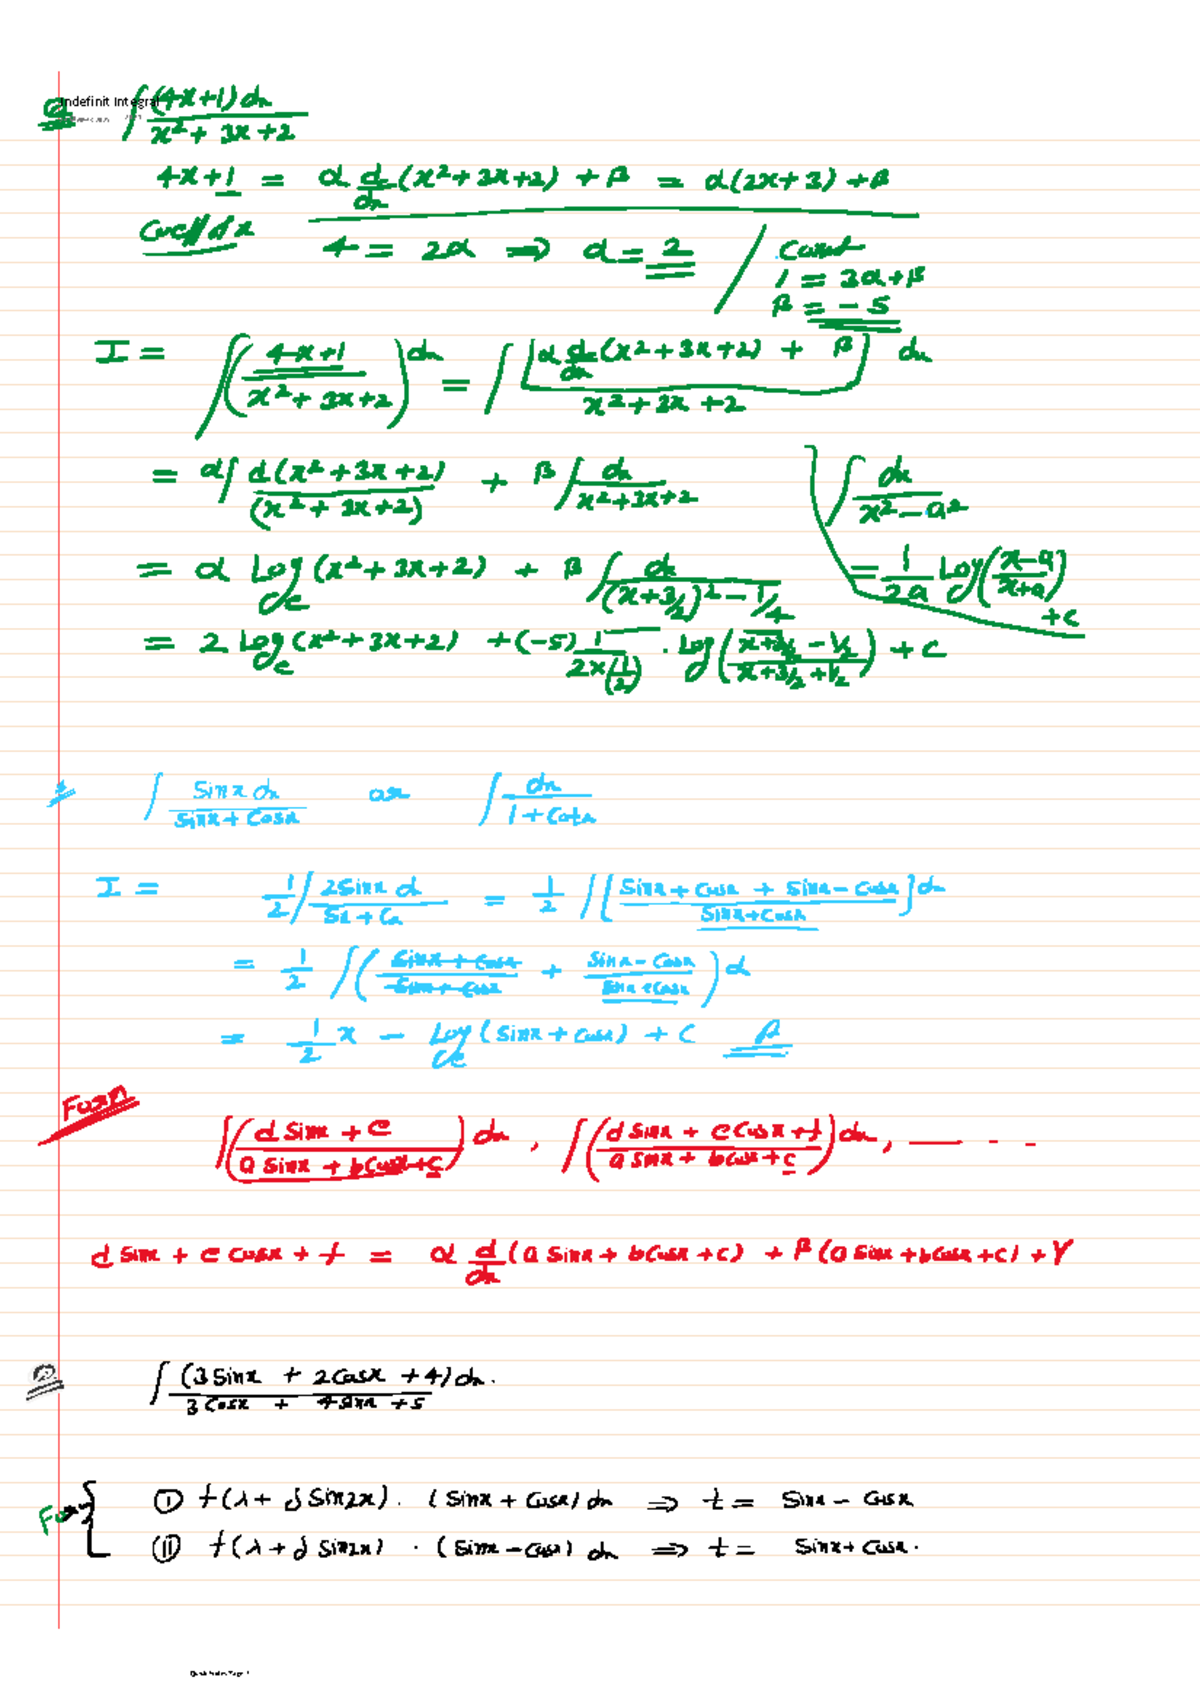 Indefinit Integral
Q ∫ (4x+1) dx / (x² + 3x + 2)
4x+1 = α d/dx (x² + 3x + 2) + β = α(2x+3) + β
Coeff of x 4 = 2α ⟹ α = 2 / Const
1 = 3α + β
β = -5
I = ∫ ( (4x+1) / (x² + 3x + 2) ) dx = ∫ [α d/dx (x² + 3x + 2) + β] / (x² + 3x + 2) dx
= α ∫ d(x² + 3x + 2) / (x² + 3x + 2) + β ∫ dx / (x² + 3x + 2)
∫ dx / (x² - a²)
= 1/2a Log ((x-a)/(x+a)) + c
= α Log e (x² + 3x + 2) + β ∫ dx / ((x+3/2)² - 1/4)
= 2 Log e (x² + 3x + 2) + (-5) 1/(2x(1/2)) . Log ((x+3/2 - 1/2) / (x+3/2 + 1/2)) + c
∫ Sinx dx / (Sinx + Cosx) or ∫ dx / (1 + Cotx)
I = 1/2 ∫ 2Sinx d / (Sx + Cx) = 1/2 ∫ [ (Sinx + Cosx + Sinx - Cosx) / (Sinx + Cosx) ] dx
= 1/2 ∫ ( (Sinx + Cosx) / (Sinx + Cosx) + (Sinx - Cosx) / (Sinx + Cosx) ) d
= 1/2 x - Log e (Sinx + Cosx) + c
Form
∫ ( (d Sinx + e) / (a Sinx + b Cosx + c) ) dx , ∫ ( (d Sinx + e Cosx + f) / (a Sinx + b Cosx + c) ) dx , — - - -
d Sinx + e Cosx + f = α d/dx (a Sinx + b Cosx + c) + β (a Sinx + b Cosx + c) + γ
Q ∫ (3 Sinx + 2 Cosx + 4) dx. / (3 Cosx + 4 Sinx + 5)
(I) f(λ + δ Sin2x) . (Sinx + Cosx) dx ⟹ t = Sinx - Cosx
(II) f(λ + δ Sin2x) . (Sinx - Cosx) dx ⟹ t = Sinx + Cosx.